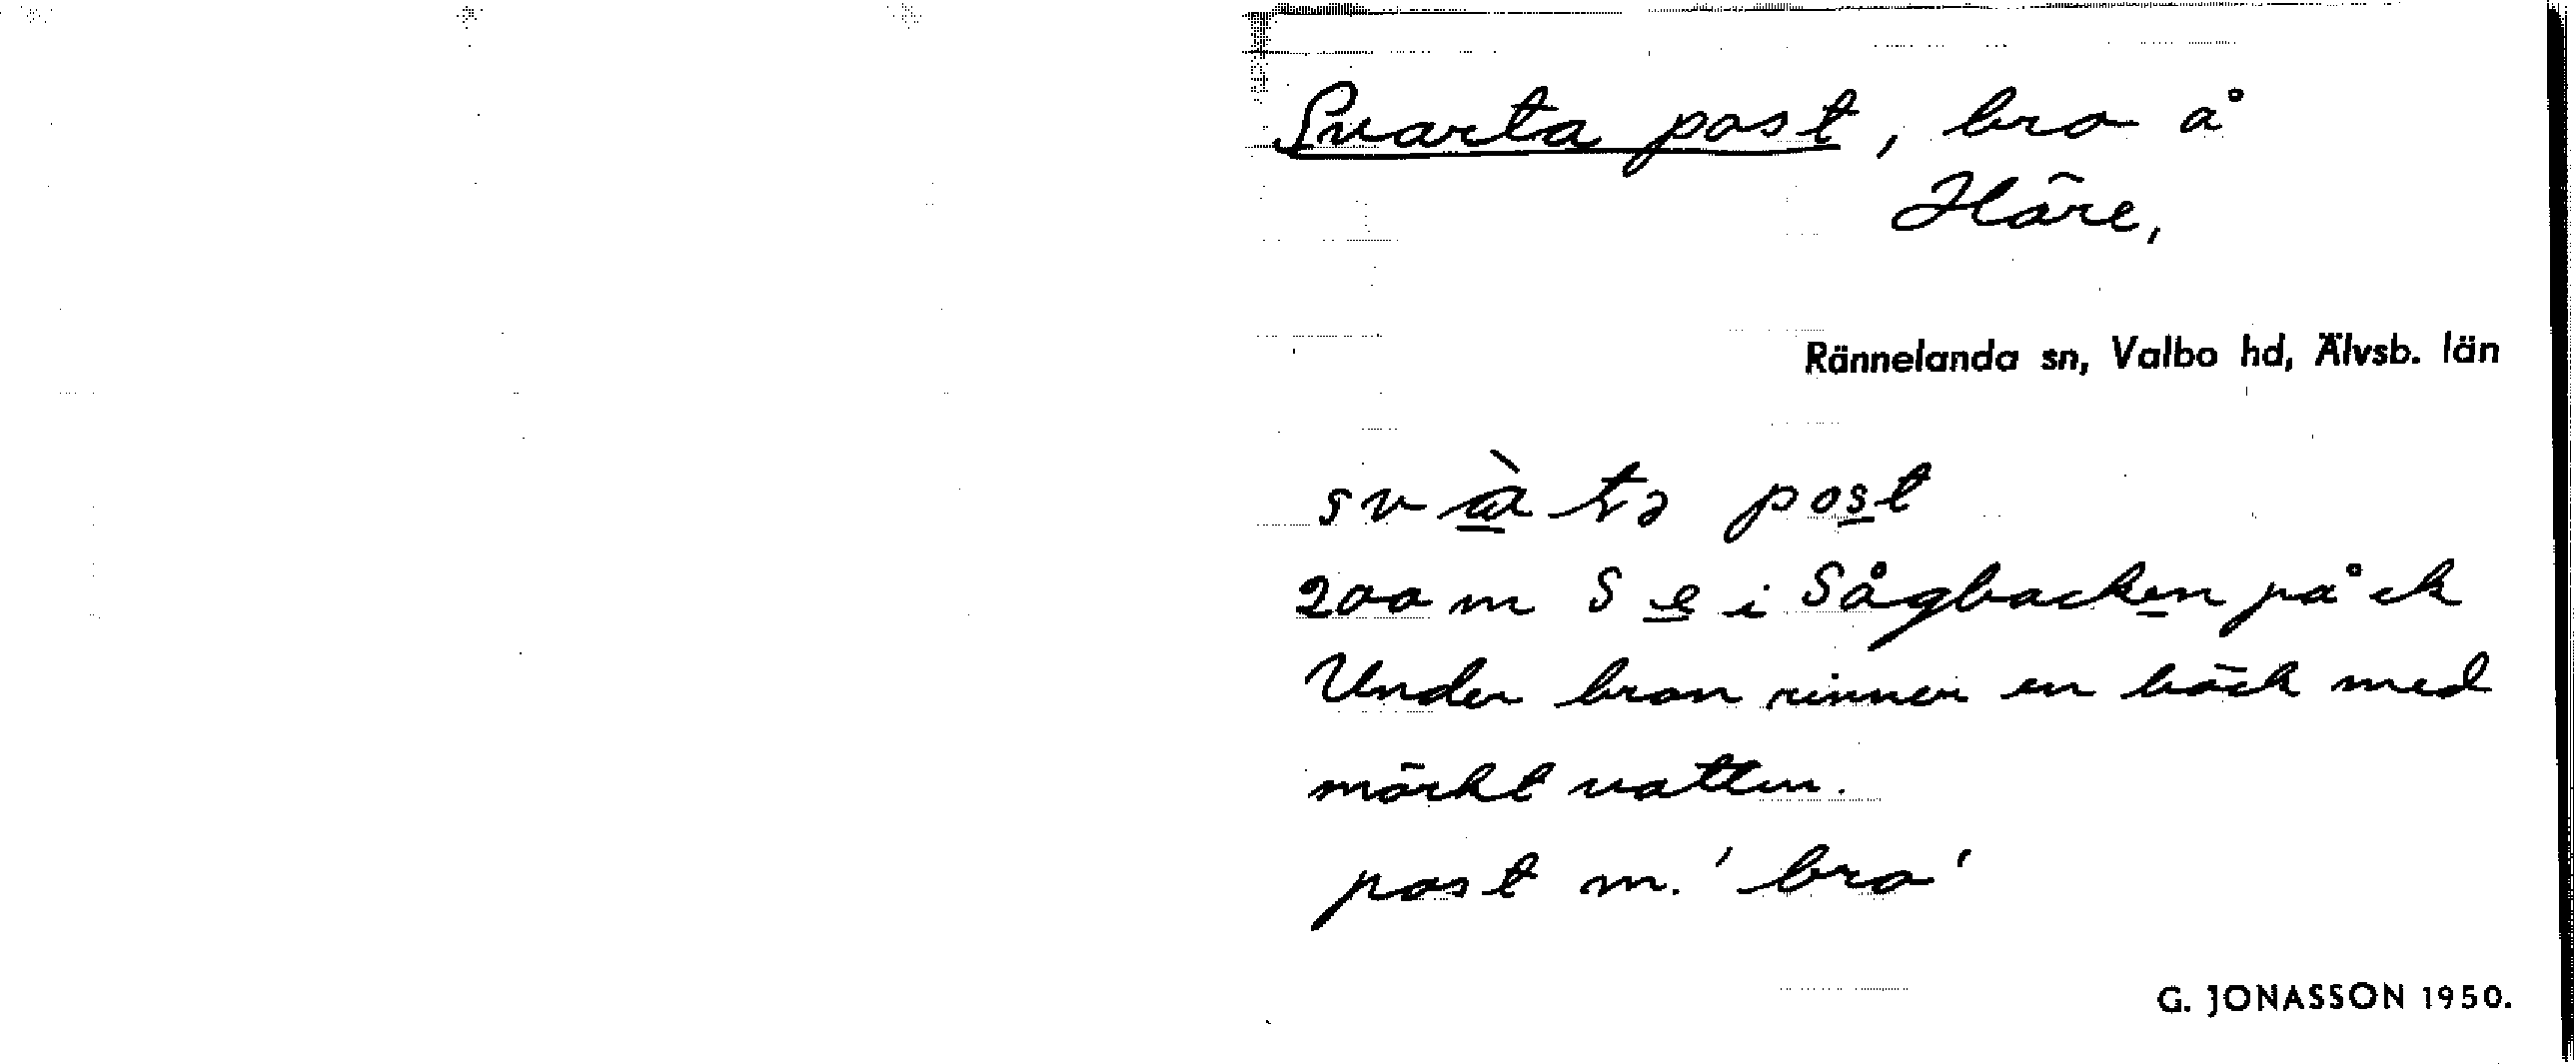 Svarta post, bro å
Häre,
Rännelanda sn, Valbo hd, Älvsb. län
svàta post
200 m S e i Sågbacken på ek
Under bron rinner en bäck med
mörkt vatten.
post m. 'bro'
G. JONASSON 1950.